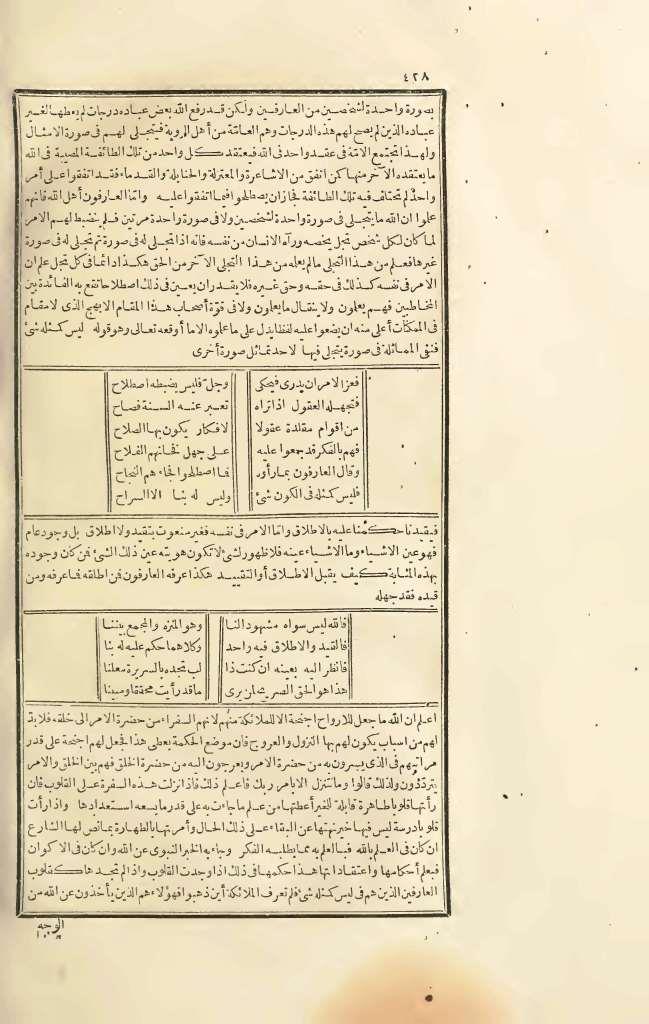 ٤٢٨
بصورة واحدة لشخصين من العارفين ولكن قد رفع الله بعض عباده درجات لم يعطها الغير
عباده الذين لم يصح لهم هذه الدرجات وهم العامة من أهل الرؤية فيتجلى لهم فى صورة الامثال
ولهذا تجتمع الامة فى عقد واحد فى الله فيعتقد كل واحد من تلك الطائفة المصيبة فى الله
ما يعتقده الآخر منها كمن اتفق من الاشاعرة والمعتزلة والحنابلة والقدماء فقد اتفقوا على أمر
واحد لم يختلف فيه تلك الطائفة فجاز ان يصطلحوا فيما اتفقوا عليه وامّا العارفون أهل الله فانهم
علموا ان الله ما يتجلى فى صورة واحدة لشخصين ولا فى صورة واحدة مرتين فلم ينضبط لهم الامر
لما كان لكل شخص تجل يخصه ورآه الانسان من نفسه فانه اذا تجلى له فى صورة ثم تجلى له فى صورة
غيرها فعلم من هذا التجلى ما لم يعلمه من هذا التجلى الآخر من الحق هكذا دائما فى كل تجل علم ان
الامر فى نفسه كذلك فى حقه وحق غيره فلا يقدر ان يعين فى ذلك اصطلاحا تقع به الفائدة بين
المخاطبين فهم يعلمون ولا ينقال ما يعلمون ولا فى قوّة أصحاب هذا المقام الابهج الذى لا مقام
فى الممكنات أعلى منه ان يضعوا عليه لفظا يدل على ما علموه الا ما أوقعه تعالى وهو قوله ليس كمثله شئ
فنفى المماثلة فى صورة يتجلى فيها لاحد تماثل صورة أخرى
فعز الامر ان يدرى فيحكى وجلّ فليس يضبطه اصطلاح
فتجهله العقول اذا تراه تعبر عنه ألسنة فصاح
من اقوام مقلدة عقولا لافكار يكون بها الصلاح
فهم بالفكر قد جمعوا عليه على جهل فخانهم الفلاح
وقال العارفون بما رأوه فما اصطلحوا فجاءهم النجاح
فليس كمثله فى الكون شئ وليس له بنا الا السراح
فيقيدنا حكمنا عليه بالاطلاق وامّا الامر فى نفسه فغير منعوت بتقيد ولا اطلاق بل وجود عام
فهو عين الاشياء وما الاشياء عينه فلا ظهور لشئ لا تكون هويته عين ذلك الشئ فمن كان وجوده
بهذه المثابة كيف يقبل الاطلاق أو التقييد هكذا عرفه العارفون فمن اطلقه فما عرفه ومن
قيده فقد جهله
فالله ليس سواه مشهود النا وهو المنزه والمجمع بيننا
فالقيد والاطلاق فيه واحد وكلاهما حكم عليه له بنا
فانظر اليه بعينه ان كنت ذا لب تجده بالسريرة معلنا
هذا هو الحق الصريح لمن يرى ما قد رأيت محققا ومبينا
اعلم ان الله ما جعل للارواح اجنحة الا للملائكة منهم لانهم السفراء من حضرة الامر الى خلقه فلا بدّ
لهم من اسباب يكون لهم بها النزول والعروج فان موضع الحكمة يعطى هذا فجعل لهم اجنحة على قدر
مراتبهم فى الذى يسيرون به من حضرة الامر ويعرجون اليه من حضرة الخلق فهم بين الخلق والامر
يتردّدون ولذلك قالوا وما نتنزل الا بامر ربك فاعلم ذلك فاذا نزلت هذه السفرة على القلوب فان
رأتها قلوبا طاهرة قابلة للخير أعطتها من علم ما جاءت به على قدر ما يسعه استعدادها واذا رأت
قلوبا درسة ليس فيها خير نهتها عن البقاء على ذلك الحال وأمرتها بالطهارة بما نص لها الشارع
ان كان فى العلم بالله فبالعلم به مما يطلبه الفكر وجاء به الخبر النبوى عن الله وان كان فى الاكوان
فبعلم أحكامها واعتقاداتها هذا حكمها فى ذلك اذا وجدت القلوب واذا لم تجدها كقلوب
العارفين الذين هم فى ليس كمثله شئ فلم تعرف الملائكة أين ذهبوا فهؤلاء هم الذين يأخذون عن الله من
الوجه